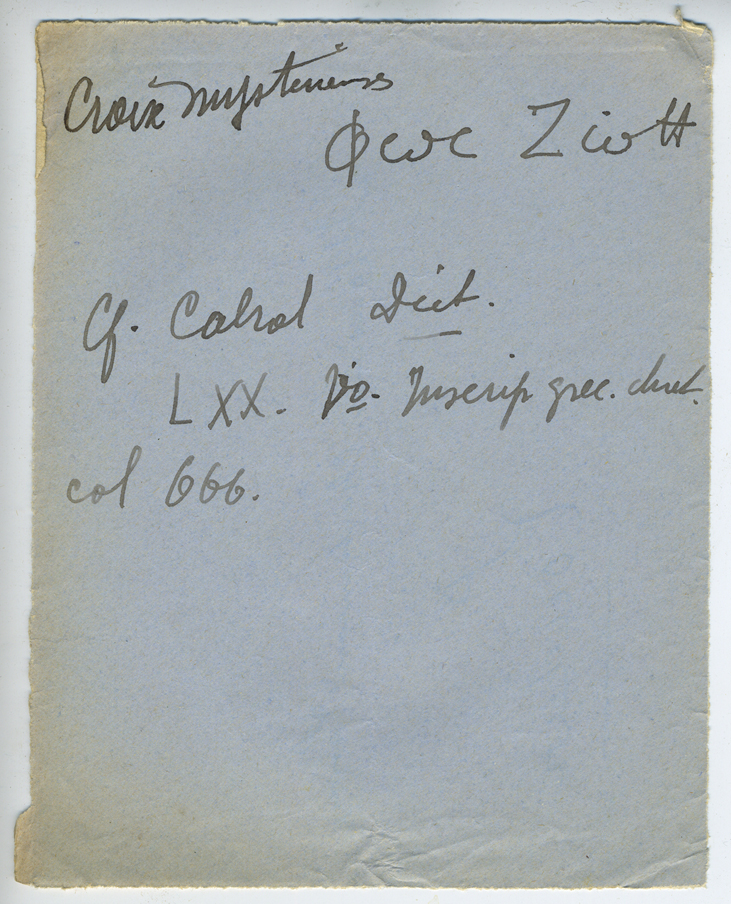 Croix mysterieuses
Φως Ζωη
Cf. Cabrol Dict.
LXX. Vo. Inscrip grec. chret.
col 666.